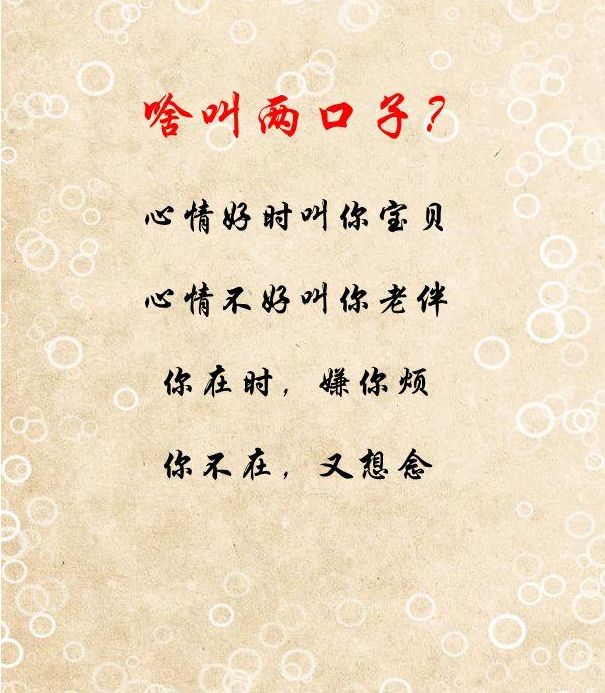 啥叫两口子？
心情好时叫你宝贝
心情不好叫你老伴
你在时，嫌你烦
你不在，又想念